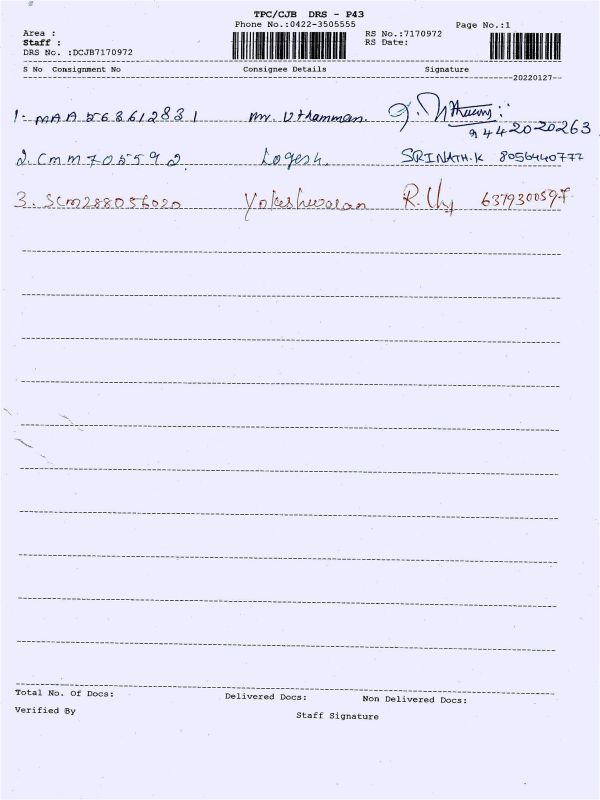 TPC/CJB DRS - P43
Phone No.:0422-3505555 Page No.:1
Area : RS No.:7170972
Staff : RS Date:
DRS No. :DCJB7170972
S No Consignment No Consignee Details Signature
20220127
1. MAA568612831 Mr. Uthamman. 9442020263
2. CMM705592 Logesh. SRINATH.K 8056440777
3. SCM288056020 Yokeshwaran 6379300597
Total No. Of Docs: Delivered Docs: Non Delivered Docs:
Verified By Staff Signature